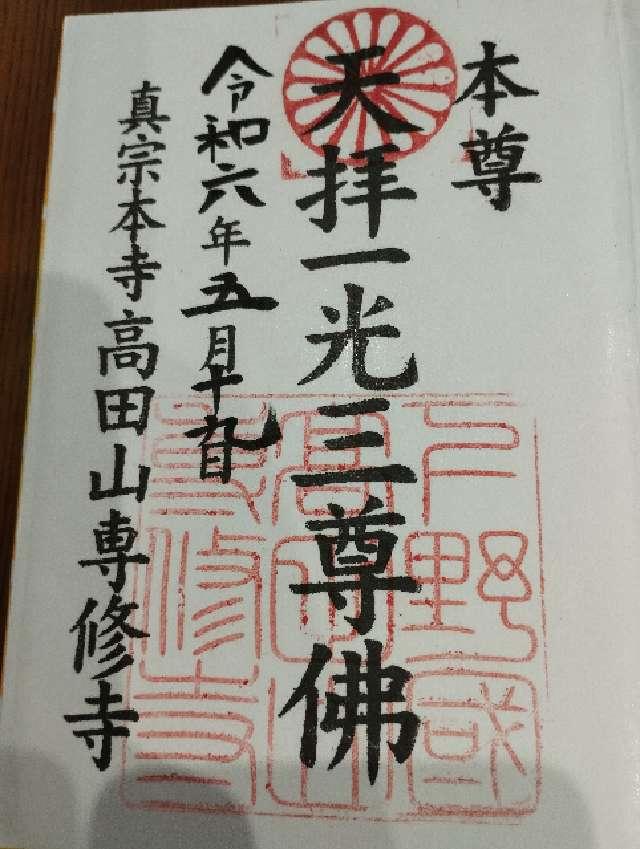 本尊
天拝一光三尊佛
令和六年五月十九日
真宗本寺高田山専修寺
下野國
高田山
専修寺